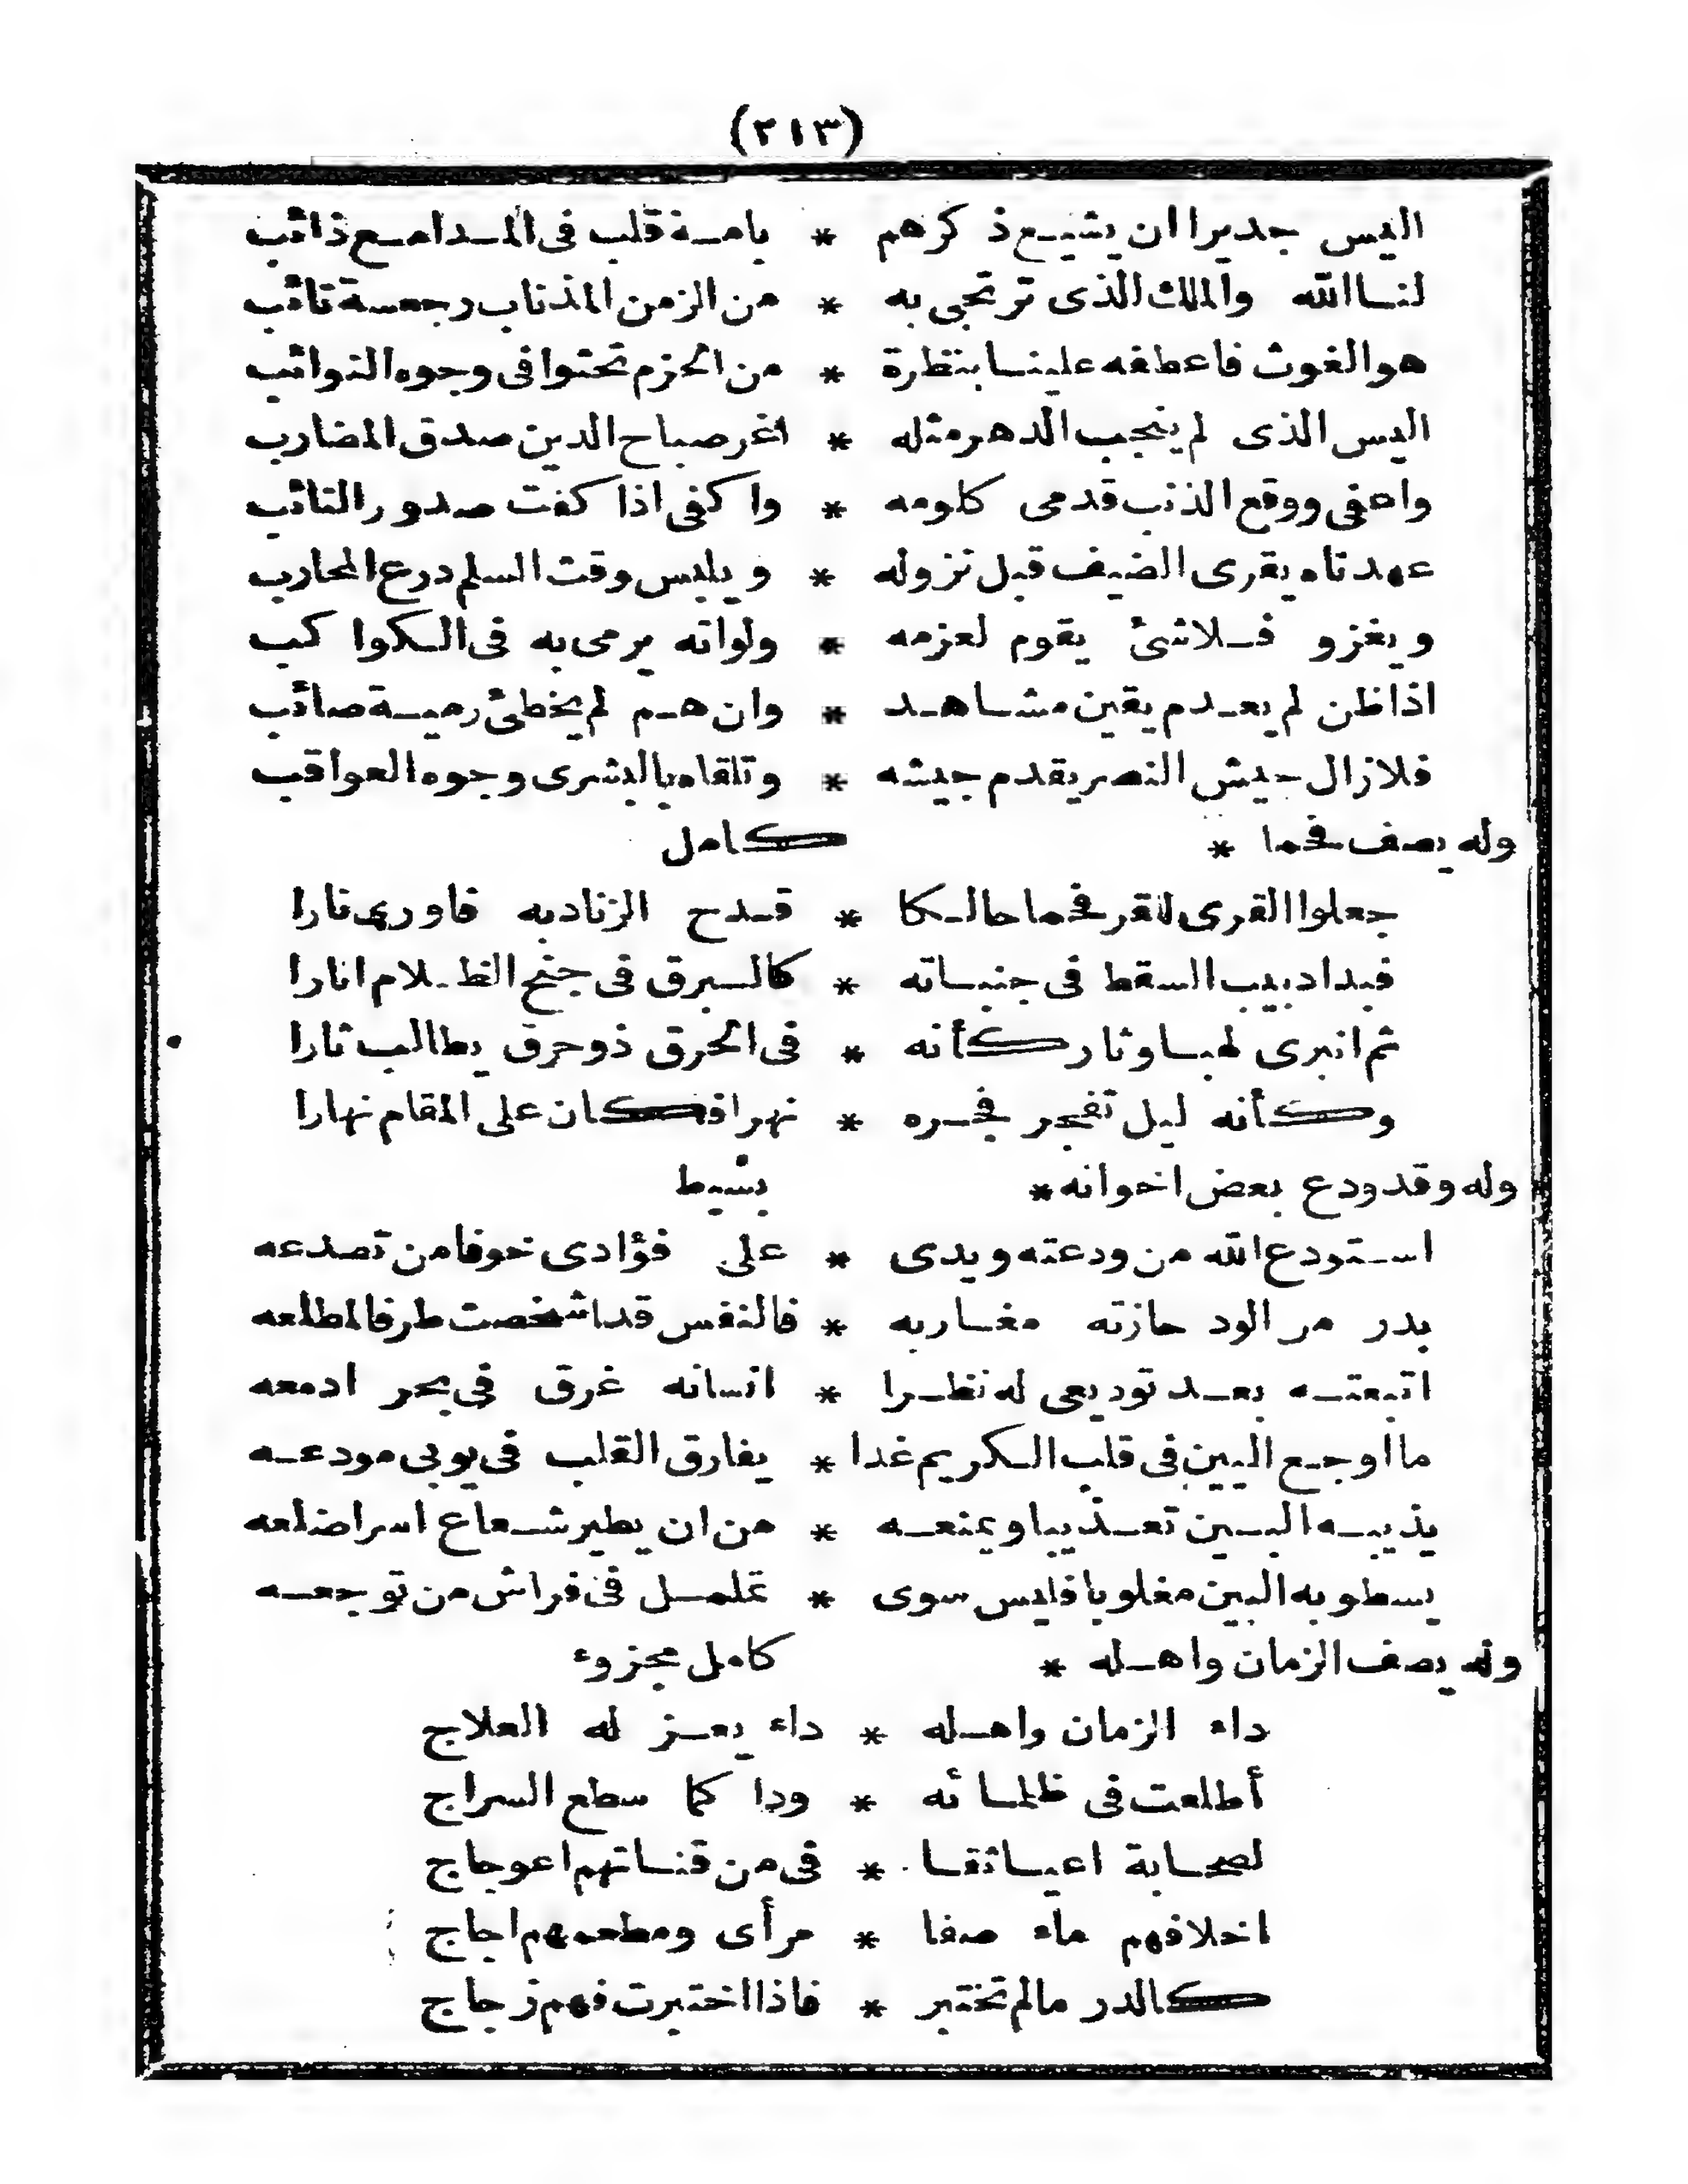 (٢١٣)
اليس جديرا ان يشيع ذكرهم * بامة قلب فى المدامع ذائب
لنا الله والملك الذى ترتجى به * من الزمن المذناب رجعة تائب
هو الغوث فاعطفه علينا بنظرة * من الحزم تحثوا فى وجوه النوائب
اليس الذى لم ينجب الدهر مثله * اغر صباح الدين صدق المضارب
واصفى ووقع الذنب قدمى كلومه * واكفى اذا كفت صدور التائب
عهدناه يقرى الضيف قبل نزوله * ويلبس وقت السلم درع المحارب
ويغزو فلاشئ يقوم لعزمه * ولوانه يرمى به فى الكواكب
اذا ظن لم يعدم يقين مشاهد * وان هم لم يخطئ رمية صائب
فلازال جيش النصر يقدم جيشه * وتلقاه بالبشرى وجوه العواقب
وله يصف فحما * كامل
جعلوا القرى للقر فحما حالكا * قدح الزناد به فاورى نارا
فبدا دبيب السقط فى جنباته * كالبرق فى جنح الظلام انارا
ثم انبرى لهبا وثار كأنه * فى الحرق ذو حرق يطالب ثارا
وكأنه ليل تفجر فجره * نهرا فكان على المقام نهارا
وله وقد ودع بعض اخوانه * بسيط
استودع الله من ودعته ويدى * على فؤادى خوفا من تصدعه
بدر من الود حازته مغاربه * فالنفس قد اشخصت طرفا لمطلعه
اتبعته بعد توديعى له نظرا * انسانه غرق فى بحر ادمعه
ما اوجع البين فى قلب الكريم غدا * يفارق القلب فى يوبى مودعه
يذيبه البين تعذيبا ويمنعه * من ان يطير شعاع اسر اضلعه
يسطو به البين مغلوبا فليس سوى * تململ فى فراش من توجعه
وله يصف الزمان واهله * كامل مجزوء
داء الزمان واهله * داء يعز له العلاج
أطلعت فى ظلمائه * ودا كما سطع السراج
لصحابة اعيا ثقا * فى من قناتهم اعوجاج
اخلاقهم ماء صفا * مرأى ومطعمهم اجاج
كالدر مالم تختبر * فاذا اختبرت فهم زجاج